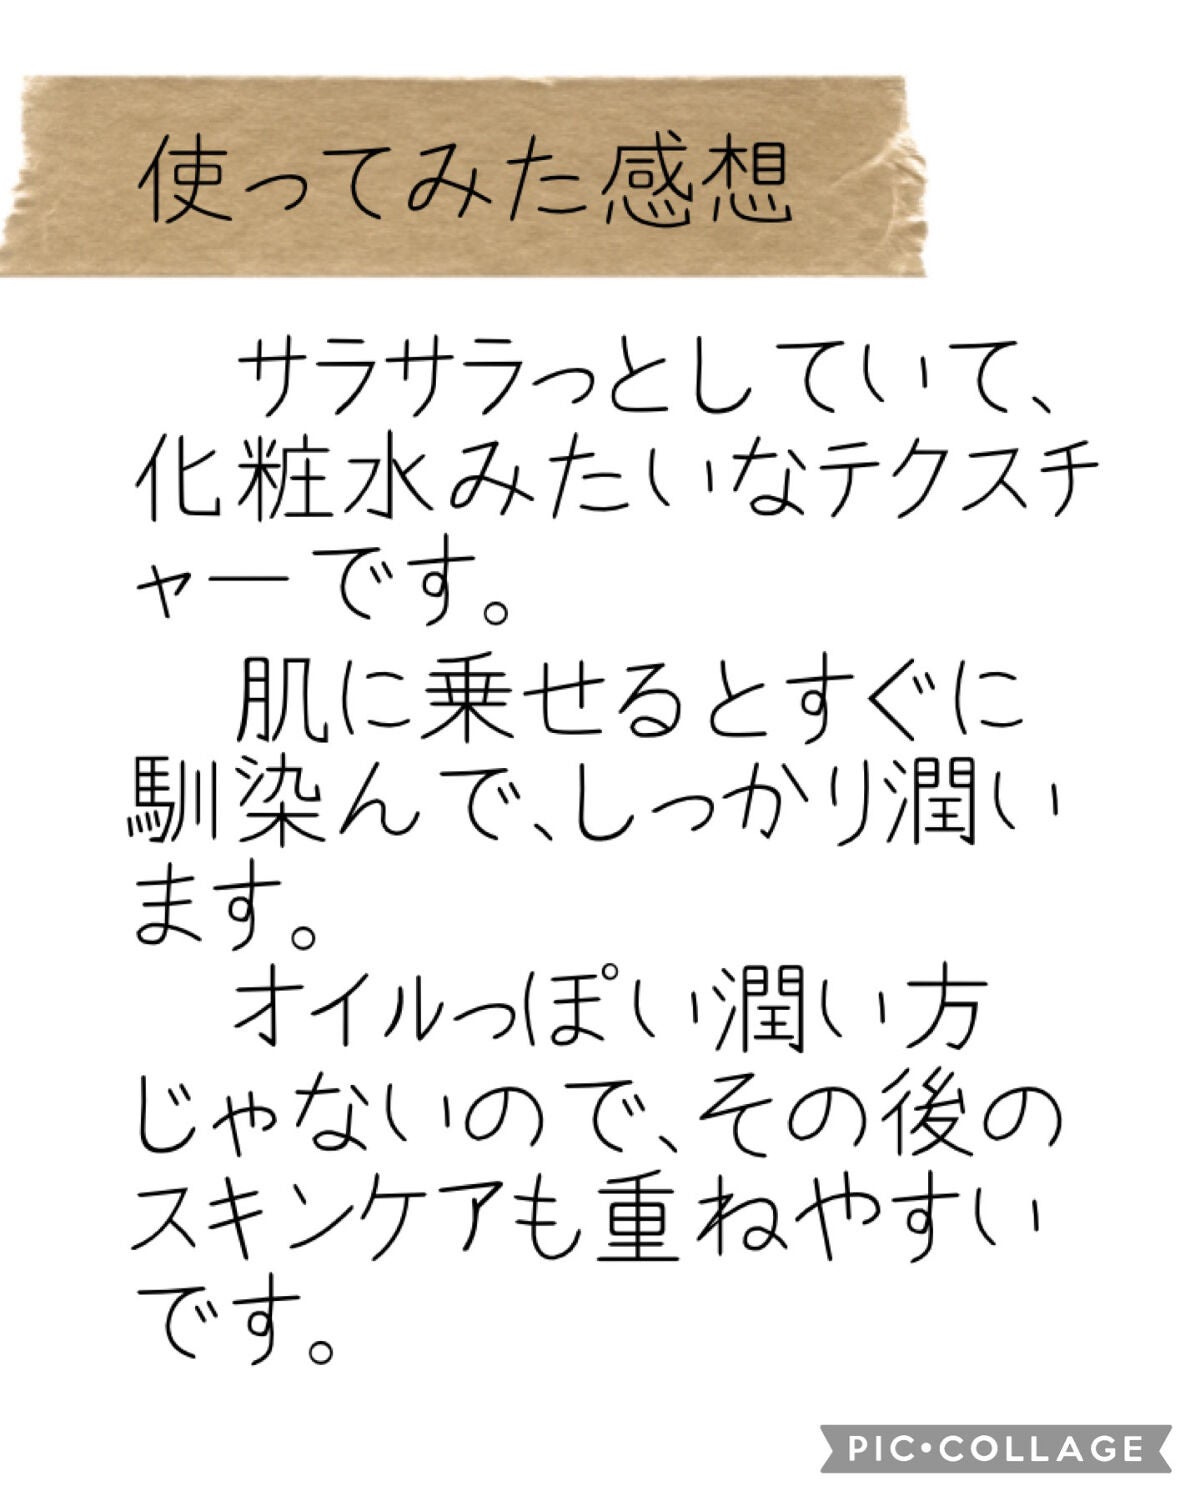 使ってみた感想
サラサラっとしていて、
化粧水みたいなテクスチ
ャーです。
肌に乗せるとすぐに
馴染んで、しっかり潤い
ます。
オイルっぽい潤い方
じゃないので、その後の
スキンケアも重ねやすい
です。
PIC•COLLAGE